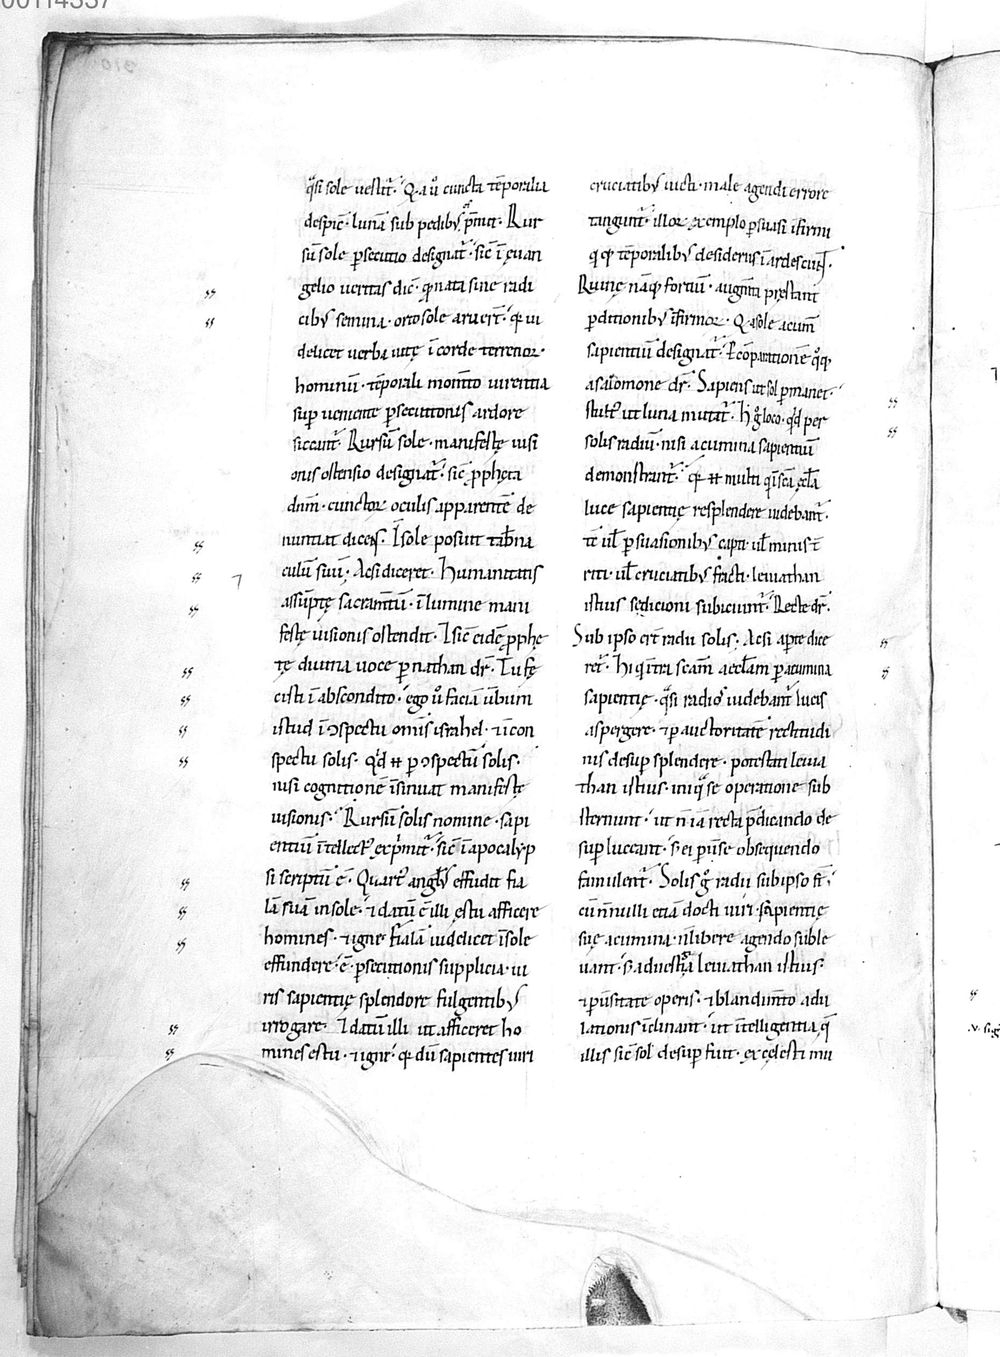 q̄si sole uestit᷑. Q̇a ů cuncta tēporalia
despic̄. lunā sub pedibꝰ p̄mit. Rur
sū sole ꝑsecutio designat᷑. sic̄ ī euan
gelio ueritas dic̄. ꝙ nata sine radi
cibꝰ semina. orto sole aruer̄t. ꝙ ui
delicet uerba uitę ī corde terrenoꝝ
hominū. tēporali mom̄to uirentia
suꝑ ueniente ꝑsecutionis ardore
siccant᷑. Rursū sole. manifestę uisi
onis ostensio designat᷑. sic̄ ꝓpheta
dn̄m. cunctoꝝ oculis apparentē de
nuntiat dicens. I sole posuit tab̄na
culū suū. Acsi diceret. Humanitatis
assūptę sacram̄tū. ī lumine mani
festę uisionis ostendit. I sic̄ eidē ꝓphe
tę diuina uoce ꝑ nathan dr̄. Tu fe
cisti ī abscondito. ego ů faciā ūbum
istud ī ɔspectu om̄is israhel. ⁊ ī con
spectu solis. Qͥd ⁊ ꝑ ɔspectū solis.
nisi cognitionē īsinuat manifestę
uisionis. Rursū solis nomine. sapi
entiū ītellect᷑ exp̄mit᷑. sic̄ ī apocalyp
si scriptū ē. Quart᷑ anglꝰ effudit fia
lā suā in sole. ⁊ datū ē illi ęstu afficere
homines. ⁊ igne. Fialā uidelicet ī sole
effundere. ē ꝑsecutionis supplicia ui
ris sapientię splendore fulgentibꝰ
irrogare. I datū illi ut afficeret ho
mines estu. ⁊ igni. ꝙ dū sapientes uiri
cruciatibꝰ uicti. male agendi errore
tangunt᷑. illoꝝ exemplo ꝑsuasi ifirmi
q̇ꝙ tēporalibꝰ desideriis īardescunt.
Ruinę nāꝙ fortiū. augm̄ta pręstant
ꝑditionibꝰ īfirmoꝝ. Q̇a sole acum̄
sapientiū designat᷑. ꝑ cōparationē qͦꝙ
a salomone dr̄. Sapiens ut sol ꝑmanet.
stult᷑ ut luna mutat᷑. H g̊ loco. qͥd per
solis radiū. nisi acumina sapientiū
demonstrant᷑. ꝙ ⁊ multi qͥ ī scā eccl̄a
luce sapientię resplendere uidebant᷑.
tē ul̄ ꝑsuasionibꝰ capti. ul̄ minis t̄
riti. ul̄ cruciatibꝰ fracti. leuiathan
istius sędicioni subiciunt᷑. Recte dr̄.
Sub ipso er̄t radii solis. Acsi aperte dice
ret᷑. Hi qͥ ītra scām aeccl̄am ꝑ acumina
sapientię. q̄si radios uidebant᷑ lucis
aspergere. ⁊ ꝑ auctoritatē rectitudi
nis desuꝑ splendere. potestati leuia
than istius. iniq̄ se operatione sub
sternunt. ut n̄ iā recta p̄dicando de
suꝑ luceant. s̄ ei puse obsequendo
famulent᷑. Solis g̊ radii sub ipso st̄.
cū nn̄ulli etiā docti uiri. sapientię
suę acumina. n̄ libere agendo suble
uant. s̄ ad uestīa leuiathan istius.
⁊ pūsitate operis. ⁊ blandim̄to adu
lationis īclinant. ut ītelligentia q̄
illis sic̄ sol desuꝑ fuit. ex cęlesti mu